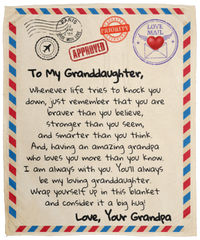 PARIS
PRIORITY
APPROVED
LOVE
MAIL
To My Granddaughter,
Whenever life tries to knock you
down, just remember that you are
braver than you believe,
stronger than you seem,
and smarter than you think.
And, having an amazing grandpa
who loves you more than you know.
I am always with you. You'll always
be my loving granddaughter.
Wrap yourself up in this blanket
and consider it a big hug!
Love, Your Grandpa